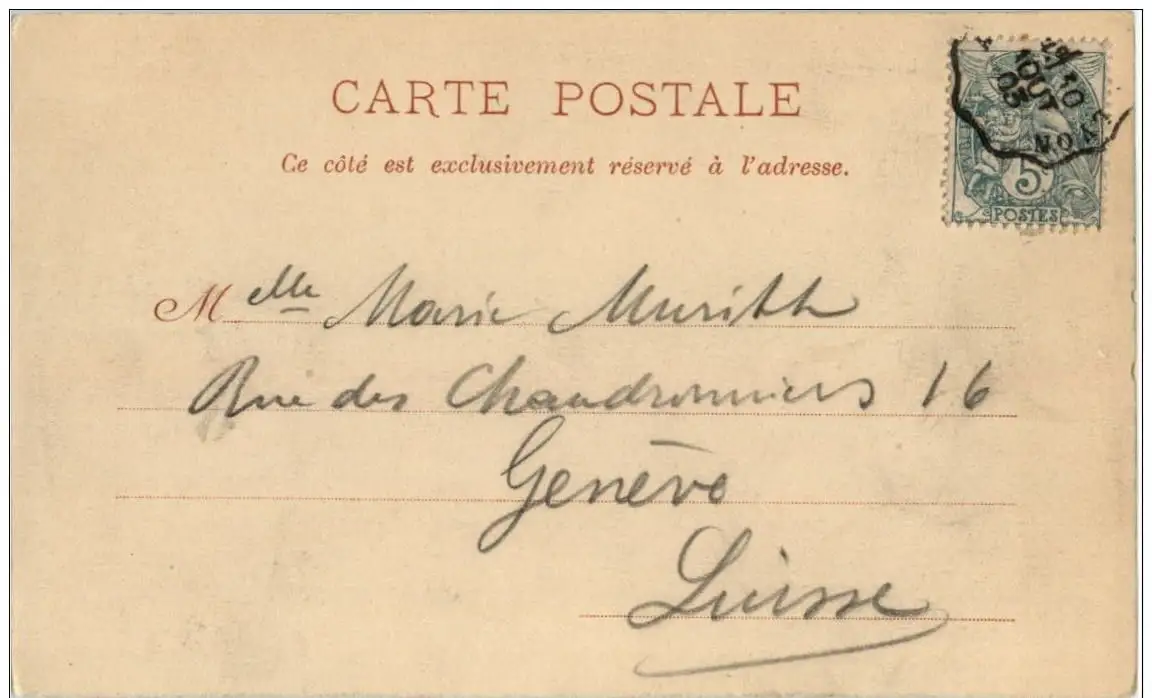 CARTE POSTALE
Ce côté est exclusivement réservé à l'adresse.
10
AOUT
03
LYON
5
POSTES
Melle Marie Murith
Rue des Chaudronniers 16
Genève
Suisse